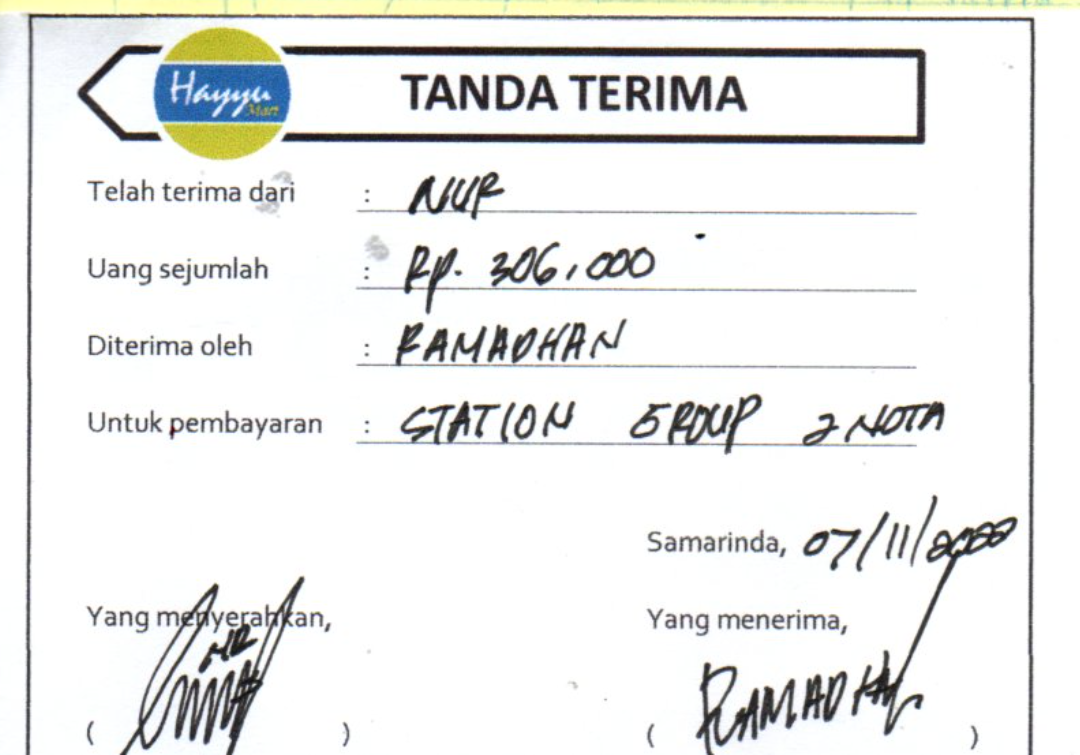 Hayyu
Mart
TANDA TERIMA
Telah terima dari : NUR
Uang sejumlah : Rp. 306.000
Diterima oleh : RAMADHAN
Untuk pembayaran : STATION GROUP 2 NOTA
Samarinda, 07/11/2022
Yang menyerahkan,
Yang menerima,
( )
( RAMADHAN )